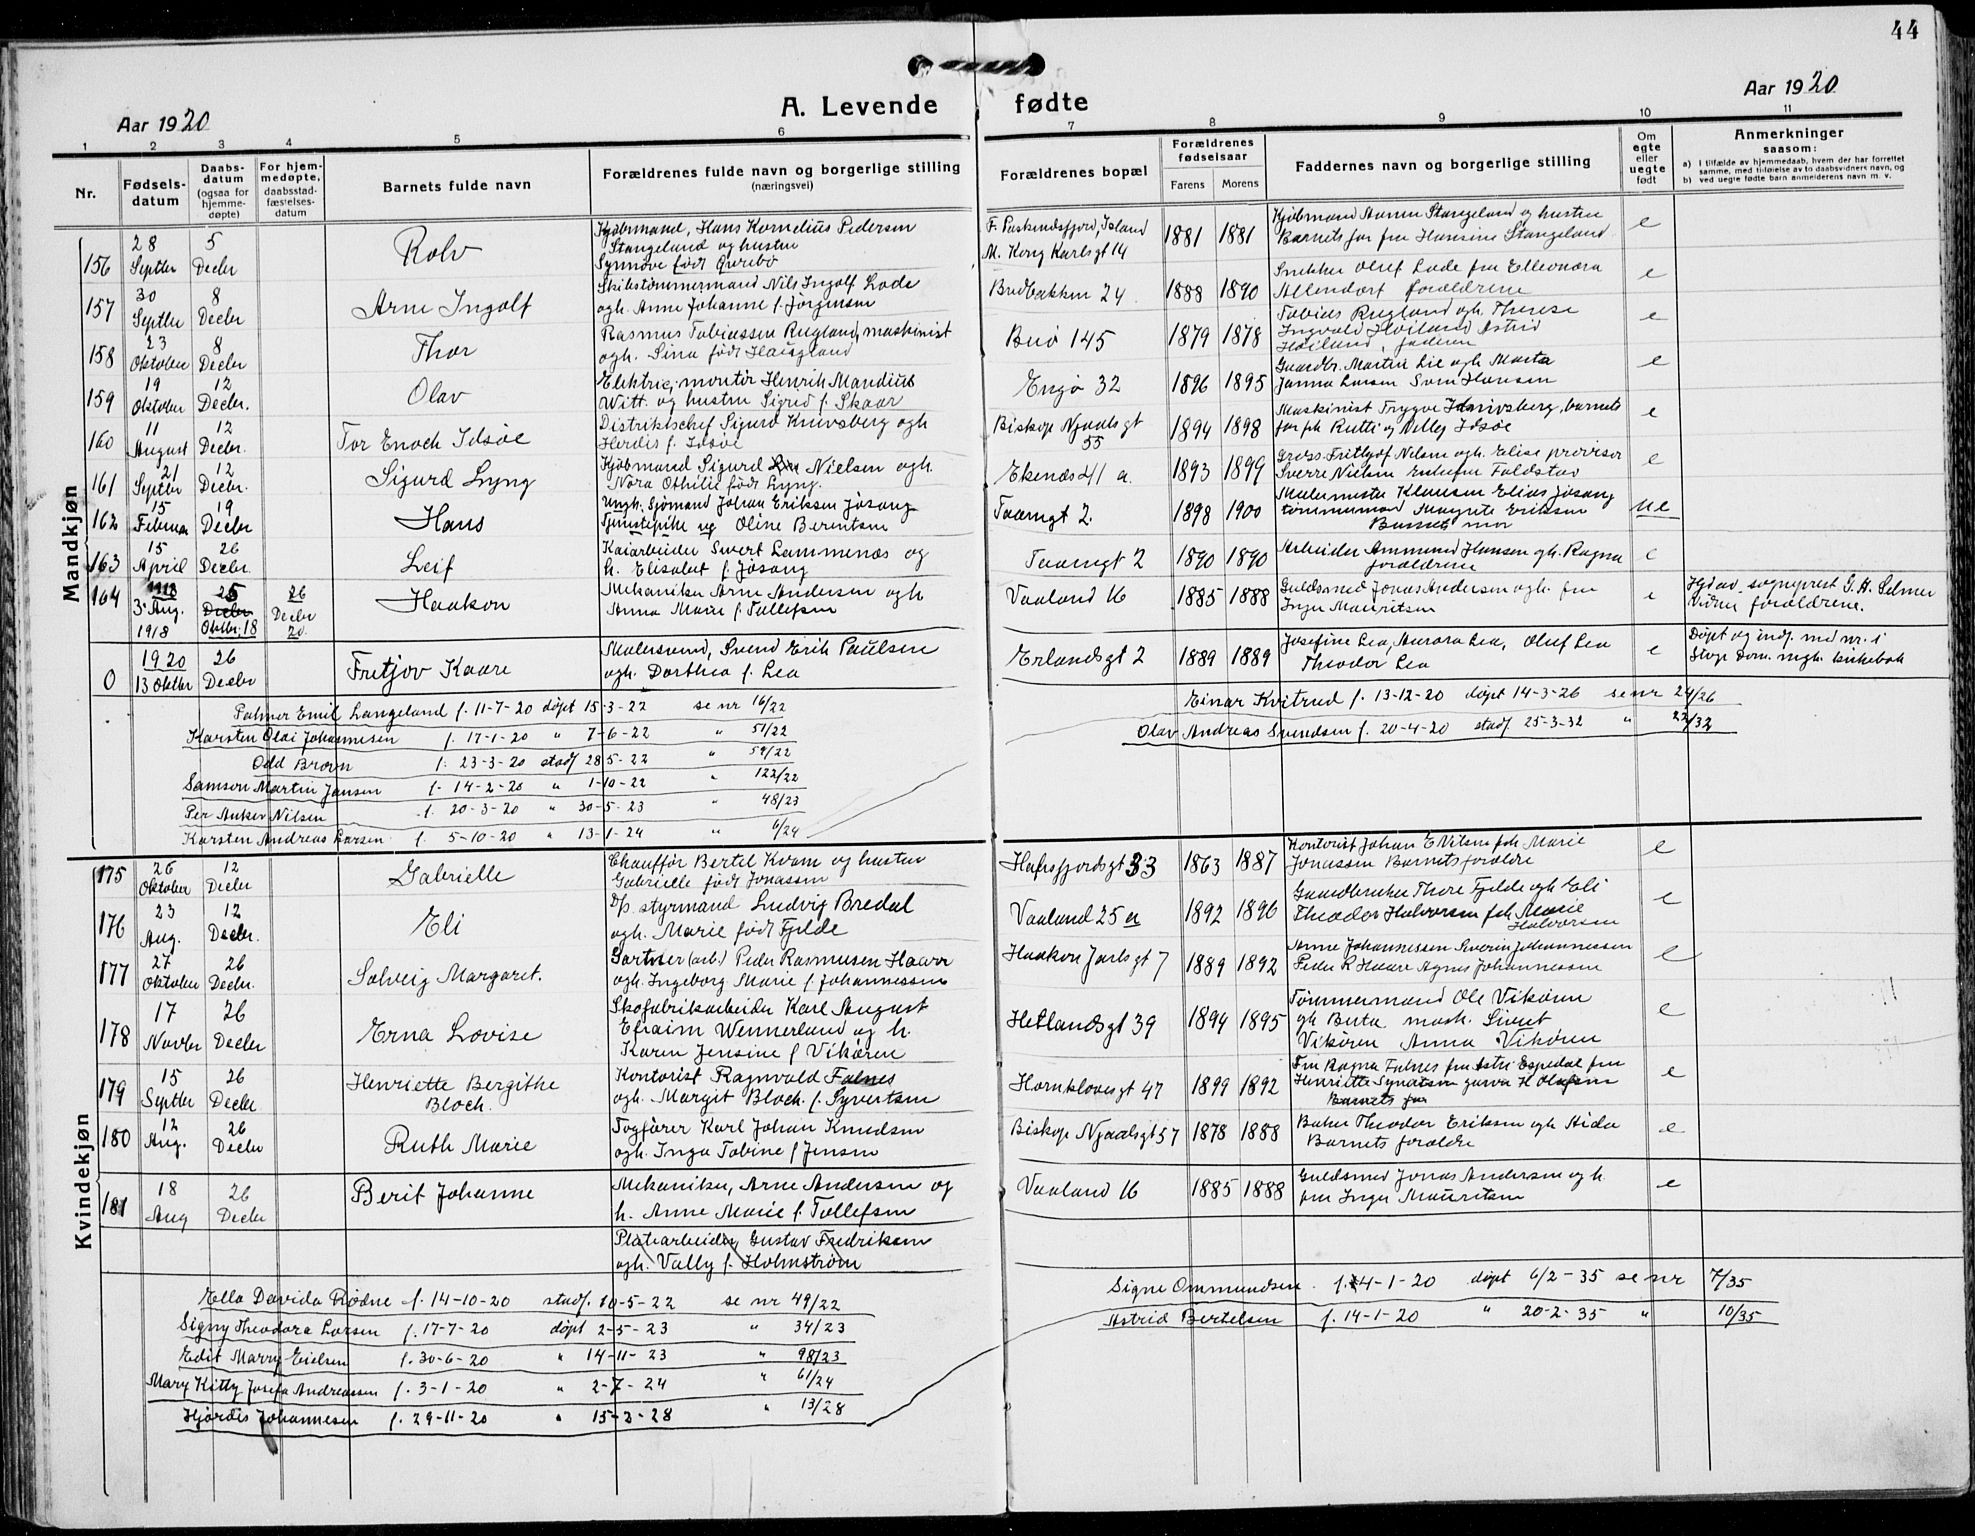 44
Aar 1920
A. Levende fødte
Aar 1920
1 2 3 4 5 6 7 8 9 10 11
Nr.
Fødsels-
datum
Daabs-
datum
(ogsaa for
hjemme-
døpte)
For hjem-
medøpte,
daabsstad-
fæstelses-
datum
Barnets fulde navn
Forældrenes fulde navn og borgerlige stilling
(næringsvei)
Forældrenes bopæl
Forældrenes
fødselsaar
Farens Morens
Faddernes navn og borgerlige stilling
Om
egte
eller
uegte
født
Anmerkninger
saasom:
a) I tilfælde av hjemmedaab, hvem der har forrettet
samme, med tilføielse av to daabsvidners navn, og
b) ved uegte fødte barn anmelderens navn m. v.
Mandkjøn
156 28 Septbr 5 Decbr Rolv
Kjøbmand, Hans Kornelius Pedersen
Stangeland og hustru
Synnøve født Øvrebø
F. Island
M. Kong Karlsgt 14
1881 1881
Kjøbmand Stangeland og hustru
Barnets far fru Hansine Stangeland
e
157 30 Septbr 8 Decbr Arne Ingolf
Skibstømmermand Nils Ingolf Lode
ogh. Anne Johanne f. Jørgensen
Bredbakken 24
1888 1890
Snekker Oluf Lode fru Elleonora
Allendorf forældrene
e
158 23 Oktober 8 Decbr Thor
Rasmus Tobiassen Rugland, maskinist
ogh. Sina født Haugland
Buø 145
1879 1878
Tobias Rugland ogh. Therese
Ingvald Høiland Astrid
Høiland, faderen
e
159 19 Oktober 12 Decbr. Olav
Elektric, montør Henrik Mandius
Witt. og hustru Sigrid f. Skaar
Engø 32
1896 1895
Gaardbr. Martin Lie ogh Marta
Janna Larsen Sven Hansen
e
160 11 August 12 Decbr. Tor Enoch Idsøe
Distriktschef Sigurd Knivsberg ogh
Herdis f. Idsøe
Biskop Njaalsgt
55
1894 1898
Maskinist Trygve Knivsberg, barnets
far frk Rutti og Nelly Idsøe
e
161 21 Septbr 12 Decbr. Sigurd Lyng
Kjøbmand Sigurd Nielsen ogh.
Nora Othilie født Lyng.
Ekenæs 41 a.
1893 1899
Gross. Fritjof Nilsen ogh. Elise provisor
Sverre Nielsen Enkefru Foldstav
e
162 15 Februar 19 Decbr Hans
Ungk. Sjømand Johan Eriksen Jøsang
Tjenestepike ug Oline Berentsen
Taarngt 2.
1898 1900
Malermester Klausen Elias Jøsang
tømmermand Margrete Eriksen
Barnets mor
ue
163 15 April 26 Decbr. Leif
Kaiarbeider Sivert Lammenæs og
h. Elisabet f. Jøsang
Taarngt 2
1890 1890
Arbeider Ammund Hansen ogh. Ragna
forældrene
e
164 1918 3. Aug. 1918 25 Decbr Oktbr. 18 26 Decbr 20. Haakon
Mekaniker Arne Andersen ogh
Anna Marie f. Tollefsen
Vaaland 16
1885 1888
Guldsmed Jonas Andersen ogh. fru
Inger Mauritsen
e
Hjdøv. sogneprest G. A. Selmer
Vidner forældrene.
0 1920 13 Oktbr 26 Decbr Fritjov Kaare
Malersvend, Svend Erik Paulsen
ogh. Dorthea f. Lea
Erlandsgt 2
1889 1889
Josefine Lea, Aurora Lea, Oluf Lea
Theodor Lea
e
Døpt og indf. med nr. i
Stvgr Dom. mgh. kirkebok
Palmer Emil Langeland f. 11-7-20 døpt 15-3-22 se nr 16/22
Karsten Olai Johannesen f. 17-1-20 " 7-6-22 " 51/22
Odd Brovn f. 23-3-20 stadf 28-5-22 " 59/22
Samson Martin Jansen f. 14-2-20 " 1-10-22 " 122/22
Per Anker Nilsen f. 20-3-20 " 30-5-23 " 48/23
Karsten Andreas Larsen f. 5-10-20 " 13-1-24 " 6/24
Einar Kvitrud f. 13-12-20 døpt 14-3-26 se nr 24/26
Olav Andreas Svendsen f. 20-4-20 stadf. 25-3-32 " 22/32
Kvindekjøn
175 26 Oktober 12 Decbr Gabrielle
Chauffør Bertel Kvam og hustru
Gabrielle født Jonassen
Hafrsfjordsgt 33
1863 1887
Kontorist Johan E Nilsen frk Marie
Jonassen Barnets forældre
e
176 23 Aug. 12 Decbr. Eli
D/s styrmand Ludvig Bredal
ogh. Marie født Fjelde
Vaaland 25 a
1892 1896
Gaardbruker Thore Fjelde ogh Eli
Theodor Halvorsen frk Marie
Halvorsen
e
177 27 Oktober 26 Decbr. Solveig Margaret.
Gartner (arb.) Peder Rasmussen Haavr
ogh. Ingeborg Marie f. Johannessen
Haakon Jarlsgt 7
1889 1892
Anne Johannessen Sverin Johannessen
Peder R Haare Agnes Johannessen
e
178 17 Novbr 26 Decbr Erna Lovise
Skofabrikarbeider Karl August
Efraim Wennerland og h.
Karen Jensine f Vikøren
Hetlandsgt 39
1894 1895
Tømmermand Ole Vikøren
ogh Berta mask. Sivert
Vikøren Anna Vikøren
e
179 15 Septbr 26 Decbr Henriette Bergithe
Bloch.
Kontorist Ragnvald Falnes
ogh. Margit Bloch. f. Syvertsen
Hornklovesgt 47
1899 1892
Fru Ragna Falnes fru Astri Espedal fru
Henriette garver H Olafsen
Barnets far
e
180 12 Aug. 26 Decbr Ruth Marie
Togfører Karl Johan Knudsen
ogh. Inga Tobine f Jensen
Biskop Njaalsgt 57
1878 1888
Baker Theodor Eriksen ogh Aida
Barnets forældre
e
181 18 Aug 26 Decbr Berit Johanne
Mekaniker, Arne Andersen og
h. Anne Marie f. Tollefsen
Vaaland 16
1885 1888
Guldsmed Jonas Andersen og h.
fru Inger Mauritsen
e
Platearbeider Gustav Fredriksen
ogh. Vally f. Holmstrøm
Ella Davida Rødne f. 14-10-20 stadf. 10-5-22 se nr 49/22
Signy Theodora Larsen f. 17-7-20 døpt 2-5-23 " 34/23
Edit Marry Eielsen f. 30-6-20 " 14-11-23 " 98/23
Mary Kitty Josefa Andreassen f. 3-1-20 " 2-7-24 " 61/24
Hjørdis Johannesen f. 29-11-20 " 15-2-28 " 13/28
Signe Ommundsen f. 4-1-20 døpt 6/2-35 se nr 7/35
Astrid Bertelsen f. 14-1-20 " 20-2-35 " 10/35